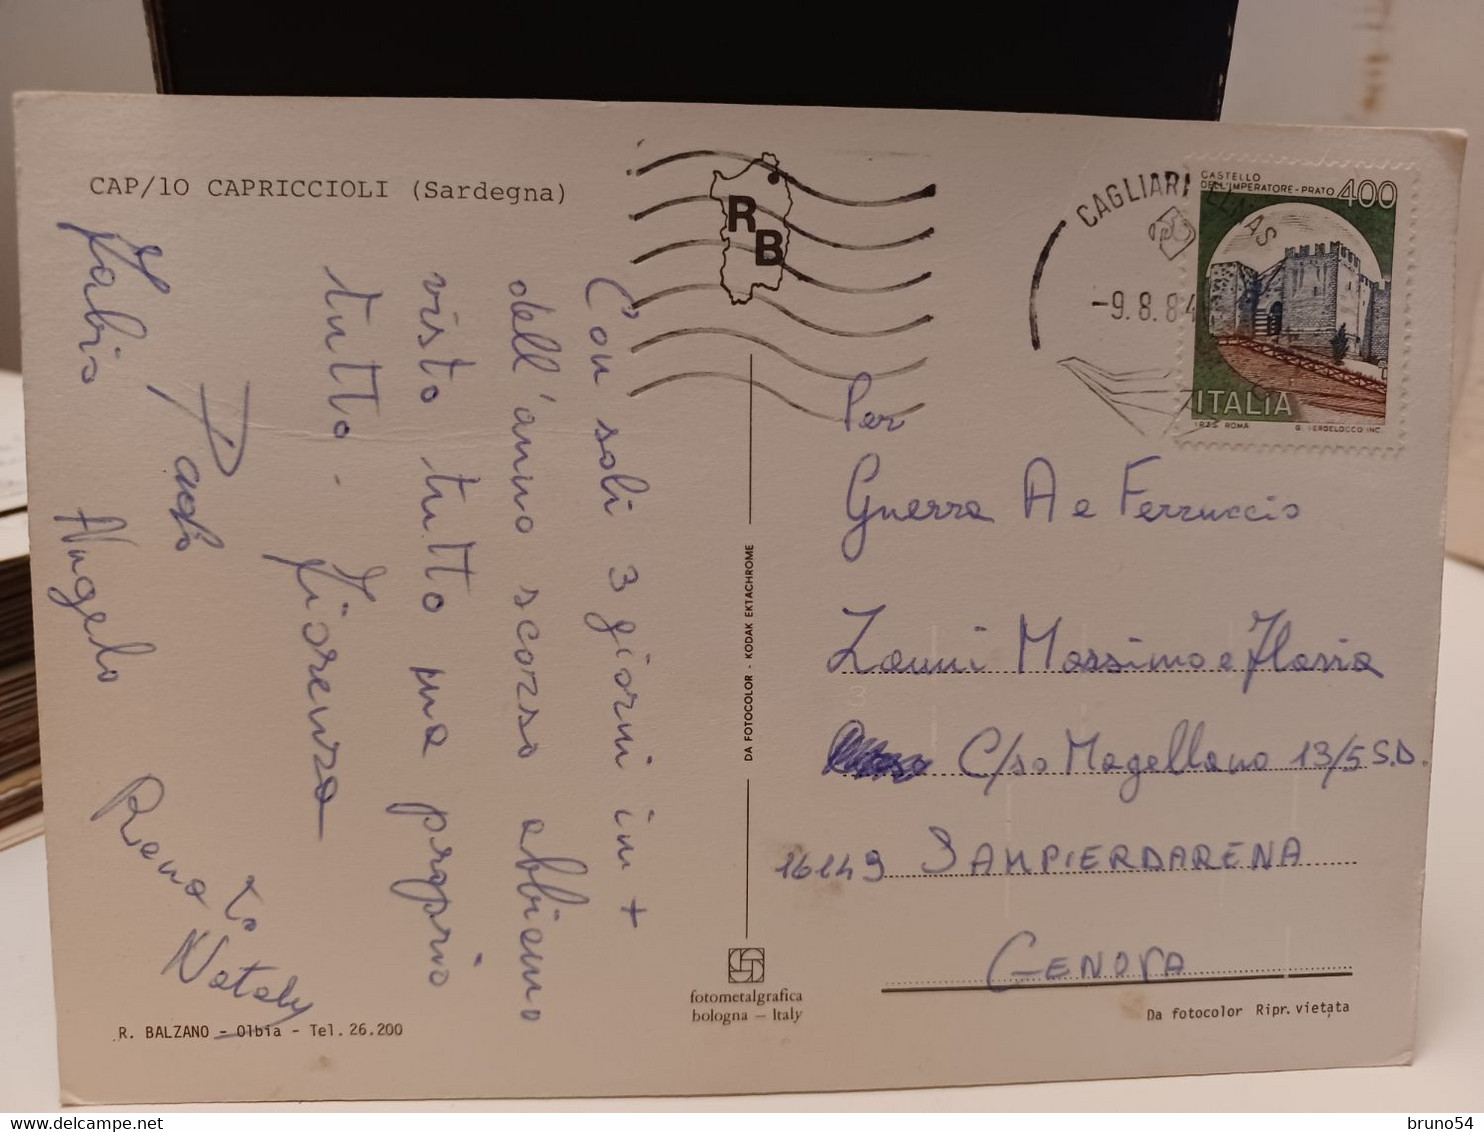 CAP/10 CAPRICCIOLI (Sardegna)
RB
CAGLIARI ELMAS
-9.8.84
CASTELLO
DELL'IMPERATORE-PRATO 400
ITALIA
I.P.Z.S. ROMA
Con soli 3 giorni in +
dell'anno scorso abbiamo
visto tutto ma proprio
tutto.
Fiorenza
Paolo
Fabio
Angelo
Renato
Nataly
Per
Guerra A e Ferruccio
Zanni Massimo e Flavia
C/so Magellano 13/5 S.D.
16149 SAMPIERDARENA
GENOVA
DA FOTOCOLOR - KODAK EKTACHROME
fotometalgrafica
bologna - Italy
R. BALZANO - Olbia - Tel. 26.200
Da fotocolor Ripr. vietata
bruno54